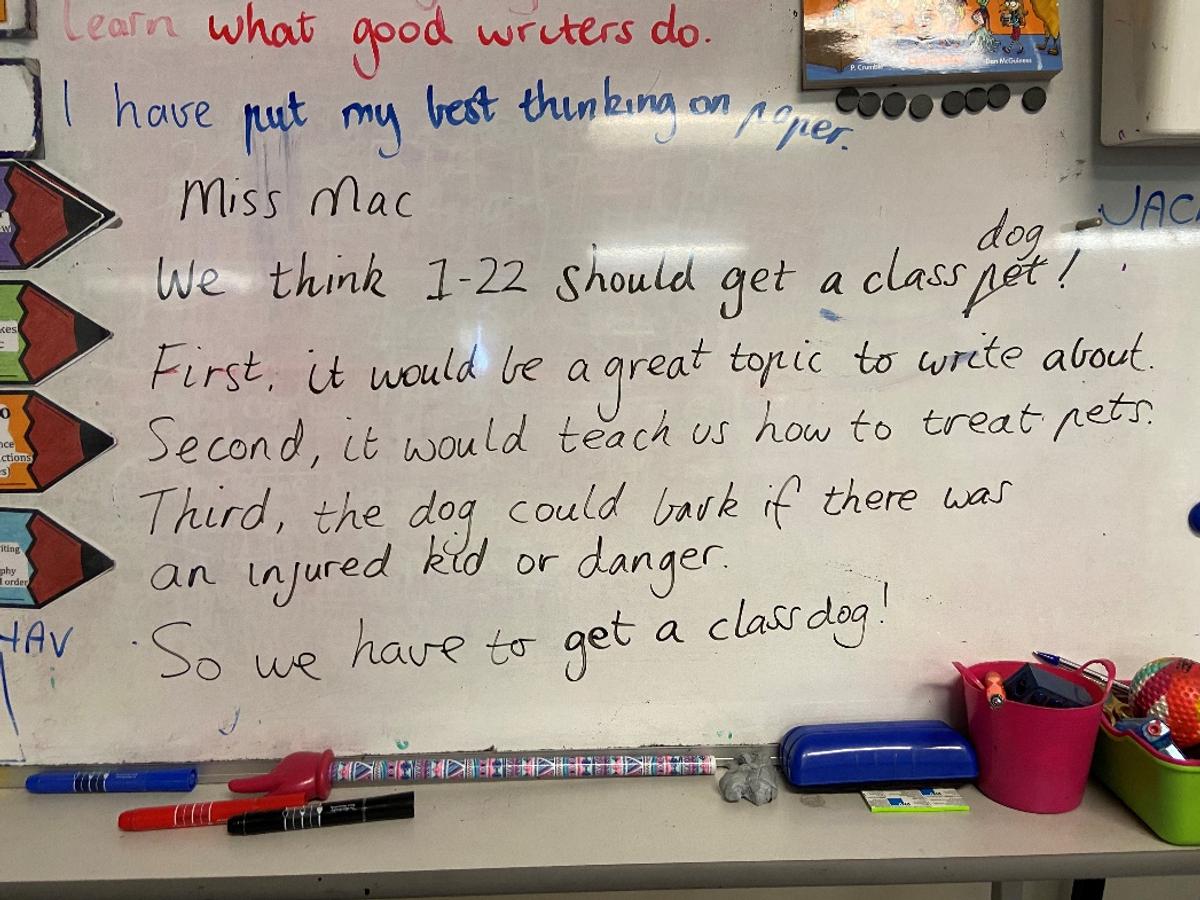 learn what good writers do.
P. Crumble Dan McGuiness
I have put my best thinking on paper.
Miss Mac
JAC
dog
We think 1-22 should get a class pet!
First, it would be a great topic to write about.
Second, it would teach us how to treat pets.
Third, the dog could bark if there was
an injured kid or danger.
So we have to get a class dog!
HAV